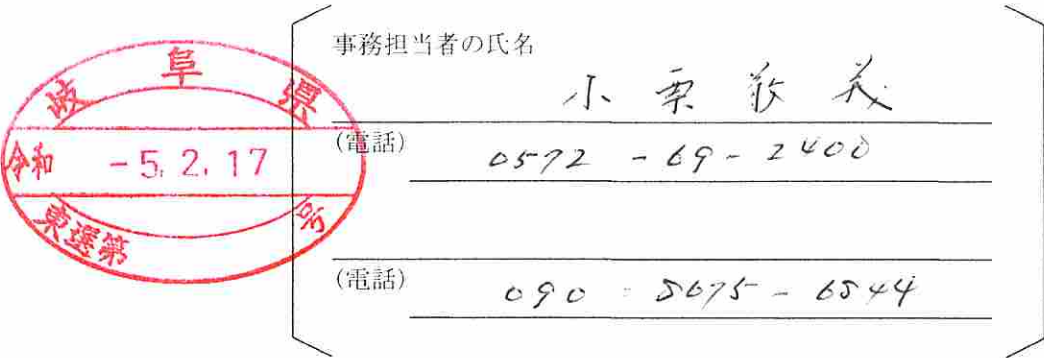 岐阜県
令和 -5.2.17
東選第 号
事務担当者の氏名
小栗敬義
(電話)
0572-69-2400
(電話)
090-5675-6544